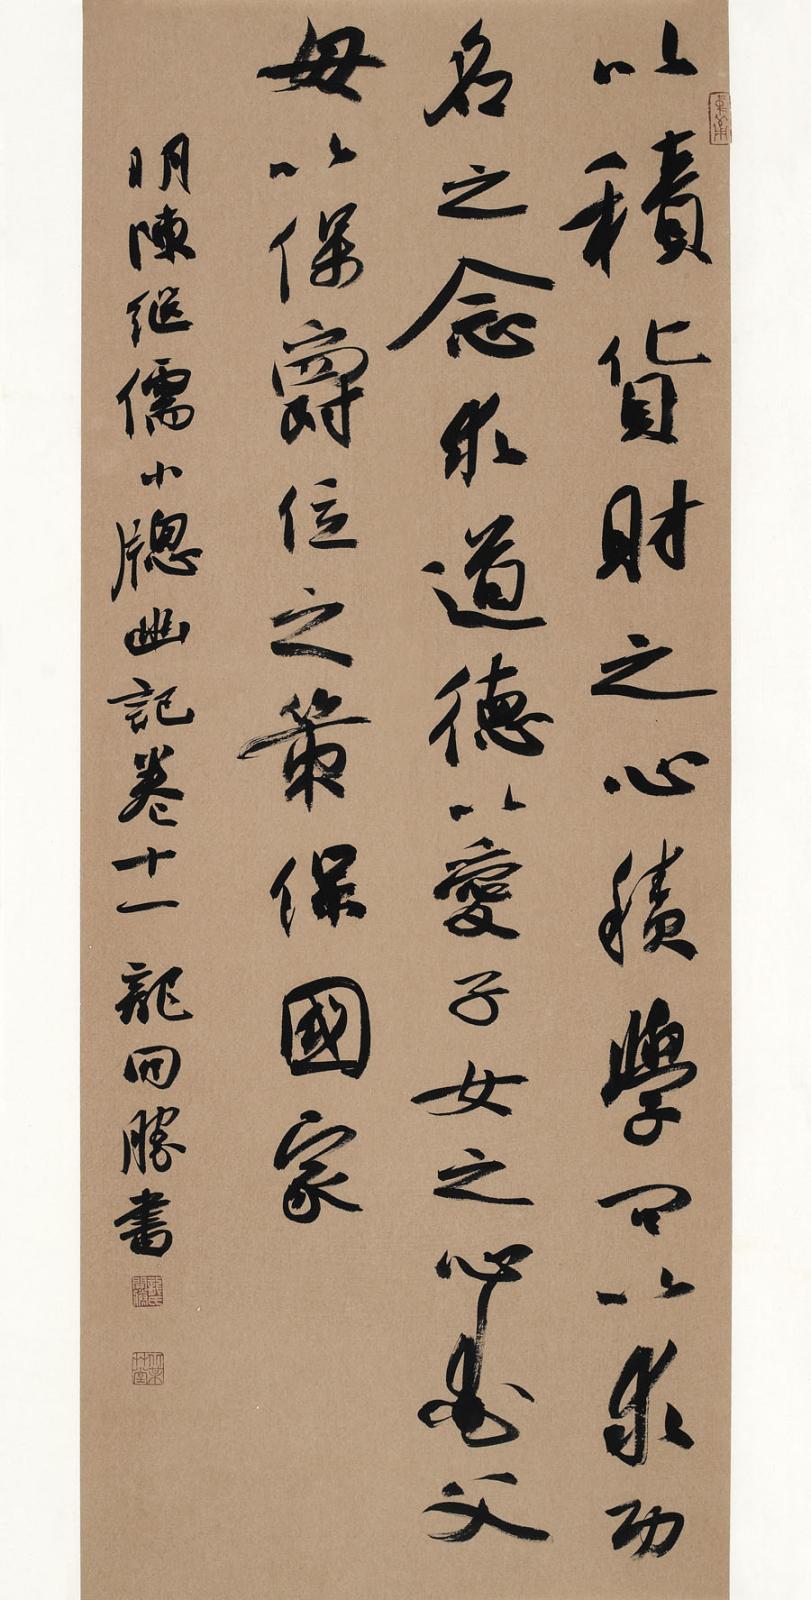 以積貨財之心積學問以求功
名之念求道德以愛子女之心愛父
母以保爵位之策保國家
明陳继儒小窗幽記卷十一龍開勝書